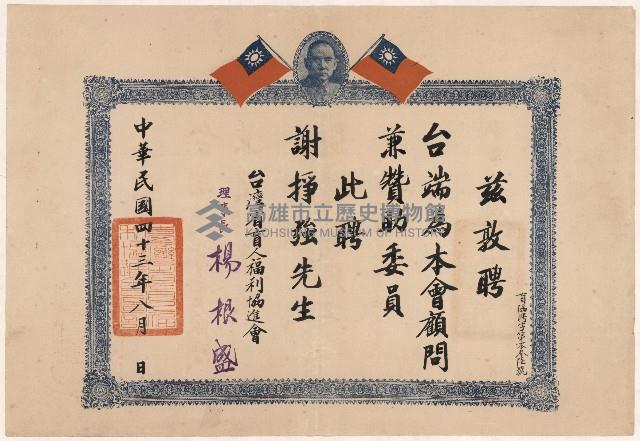 茲敦聘
台端為本會顧問
兼贊助委員
此聘
謝掙強先生
台灣省盲人福利協進會
理事長 楊根盛
中華民國四十三年八月 日
高雄市立歷史博物館
KAOHSIUNG MUSEUM OF HISTORY